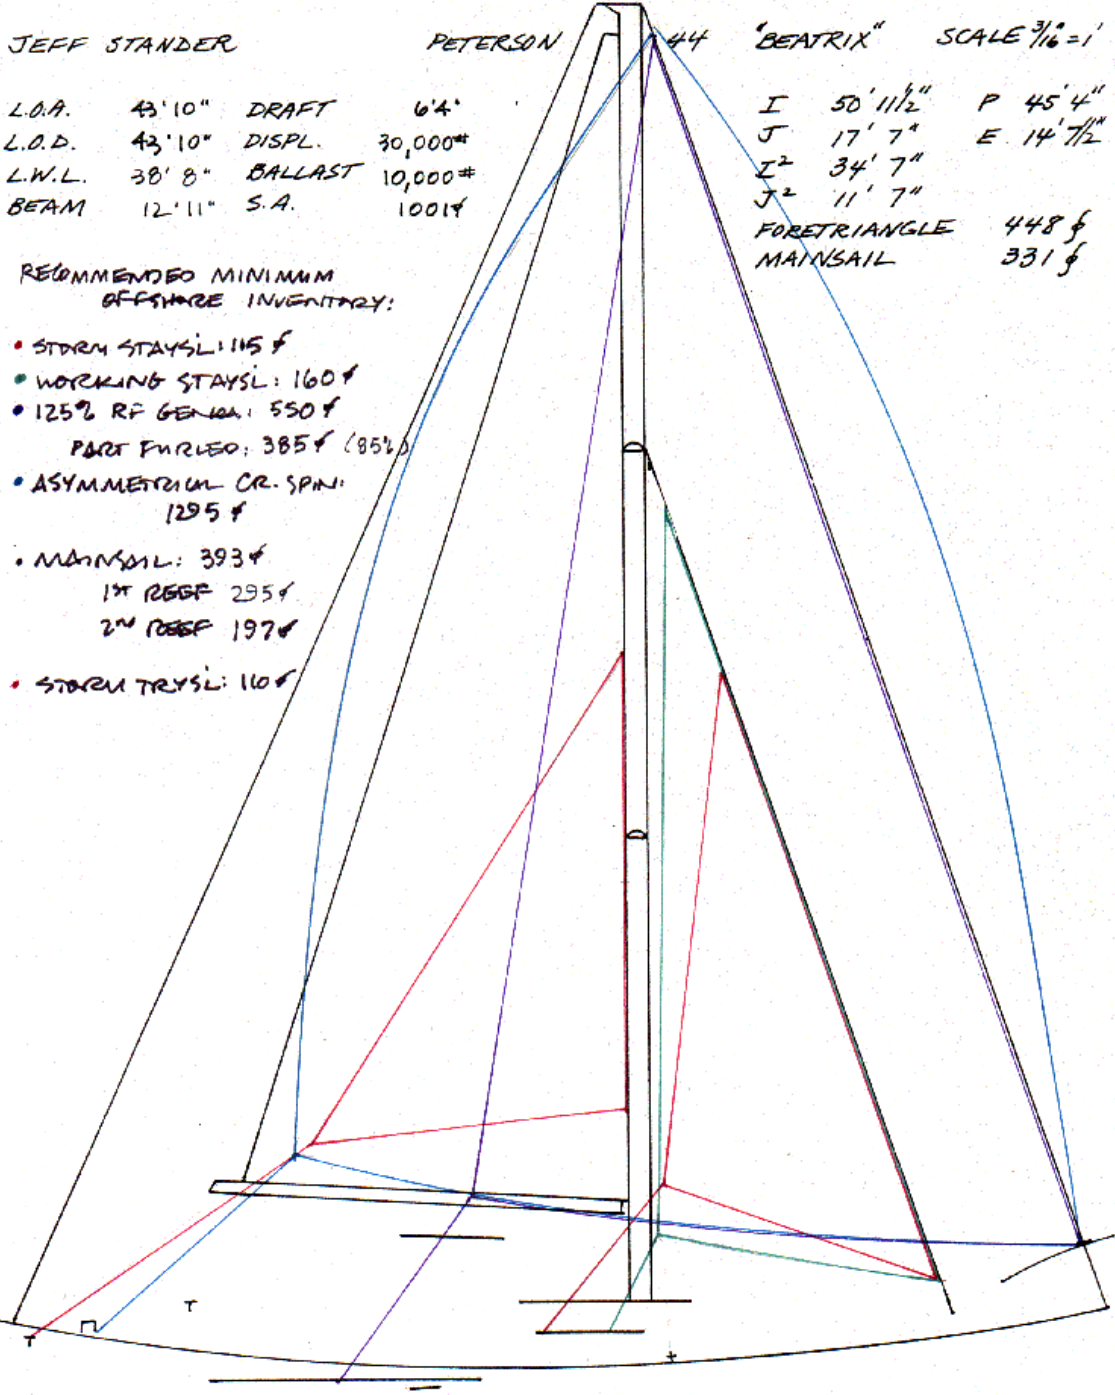 JEFF STANDER PETERSON 44 "BEATRIX" SCALE 3/16"=1'
L.O.A. 43'10" DRAFT 6'4"
L.O.D. 43'10" DISPL. 30,000#
L.W.L. 38'8" BALLAST 10,000#
BEAM 12'11" S.A. 1001 ∮
I 50'11 1/2" P 45'4"
J 17'7" E 14'7 1/2"
I² 34'7"
J² 11'7"
FORETRIANGLE 448 ∮
MAINSAIL 331 ∮
RECOMMENDED MINIMUM
OFFSHORE INVENTORY:
• STORM STAYS'L: 115 ∮
• WORKING STAYS'L: 160 ∮
• 125% RF GENOA: 550 ∮
PART FURLED: 385 ∮ (85%)
• ASYMMETRICAL CR. SPIN:
1295 ∮
• MAINSAIL: 393 ∮
1ST REEF 295 ∮
2ND REEF 197 ∮
• STORM TRYS'L: 110 ∮